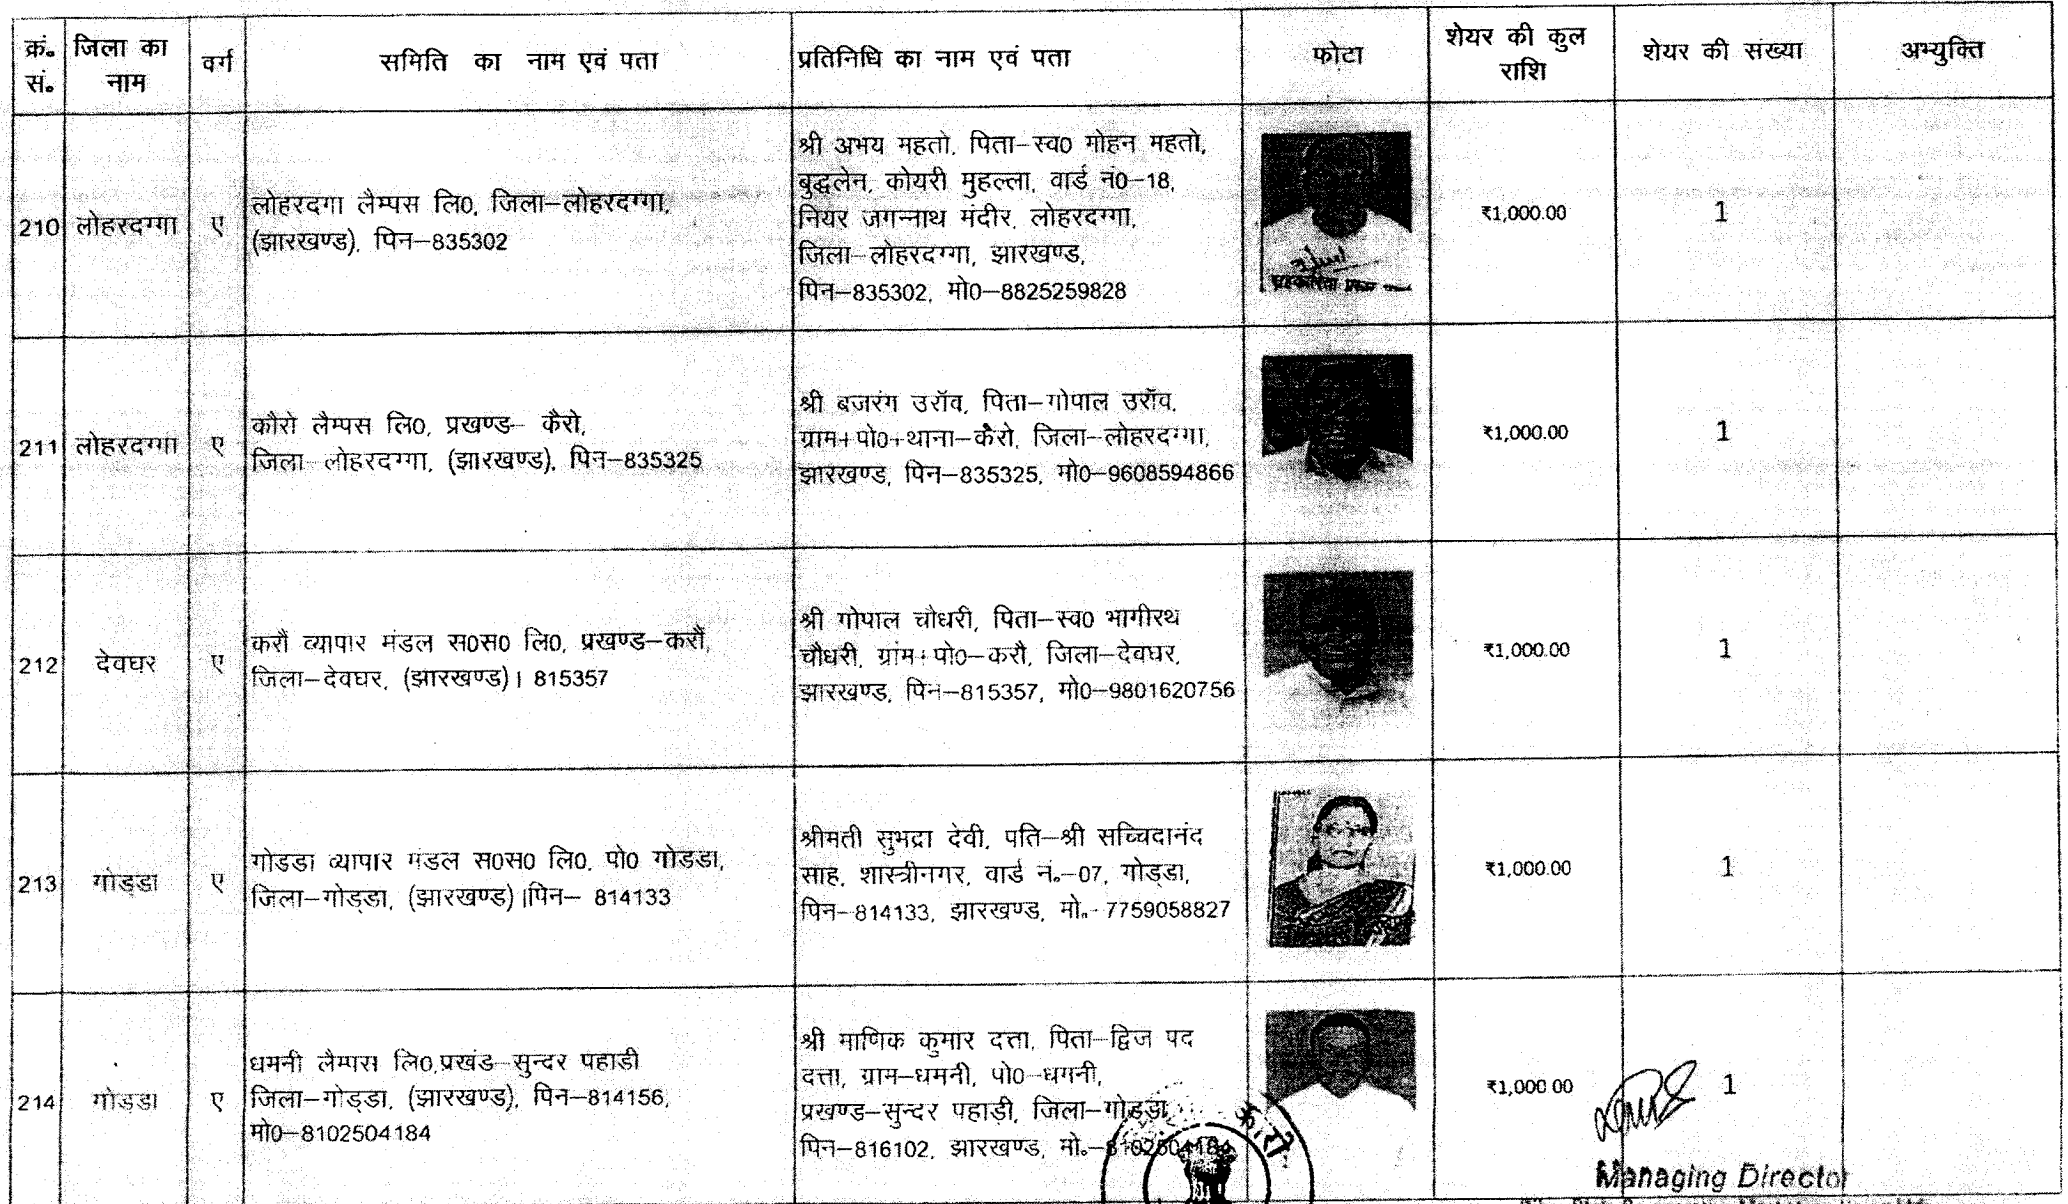 क्रं॰ सं॰ | जिला का नाम | वर्ग | समिति का नाम एवं पता | प्रतिनिधि का नाम एवं पता | फोटा | शेयर की कुल राशि | शेयर की संख्या | अभ्युक्ति
210 | लोहरदग्गा | ए | लोहरदगा लैम्पस लि0, जिला–लोहरदग्गा,
(झारखण्ड), पिन–835302
श्री अभय महतो, पिता–स्व0 मोहन महतो,
बुद्धलेन, कोयरी मुहल्ला, वार्ड नं0–18,
नियर जगन्नाथ मंदीर, लोहरदग्गा,
जिला–लोहरदग्गा, झारखण्ड,
पिन–835302, मो0–8825259828
₹1,000.00 | 1
211 | लोहरदग्गा | ए | कौरो लैम्पस लि0, प्रखण्ड– कैरो,
जिला–लोहरदग्गा, (झारखण्ड), पिन–835325
श्री बजरंग उरॉव, पिता–गोपाल उरॉव,
ग्राम+पो0+थाना–कैरो, जिला–लोहरदग्गा,
झारखण्ड, पिन–835325, मो0–9608594866
₹1,000.00 | 1
212 | देवघर | ए | करौं व्यापार मंडल स0स0 लि0, प्रखण्ड–करौं,
जिला–देवघर, (झारखण्ड)। 815357
श्री गोपाल चौधरी, पिता–स्व0 भागीरथ
चौधरी, ग्रांम+पो0–करौ, जिला–देवघर,
झारखण्ड, पिन–815357, मो0–9801620756
₹1,000.00 | 1
213 | गोड्डा | ए | गोडडा व्यापार मंडल स0स0 लि0, पो0 गोडडा,
जिला–गोड्डा, (झारखण्ड)।पिन– 814133
श्रीमती सुभद्रा देवी, पति–श्री सच्चिदानंद
साह, शास्त्रीनगर, वार्ड नं॰–07, गोड्डा,
पिन–814133, झारखण्ड, मो॰–7759058827
₹1,000.00 | 1
214 | गोड्डा | ए | धमनी लैम्पस लि0,प्रखंड–सुन्दर पहाडी
जिला–गोड्डा, (झारखण्ड), पिन–814156,
मो0–8102504184
श्री माणिक कुमार दत्ता, पिता–द्विज पद
दत्ता, ग्राम–धमनी, पो0–धमनी,
प्रखण्ड–सुन्दर पहाड़ी, जिला–गोड्डा
पिन–816102, झारखण्ड, मो॰–8102504184
₹1,000.00 | 1
Managing Director